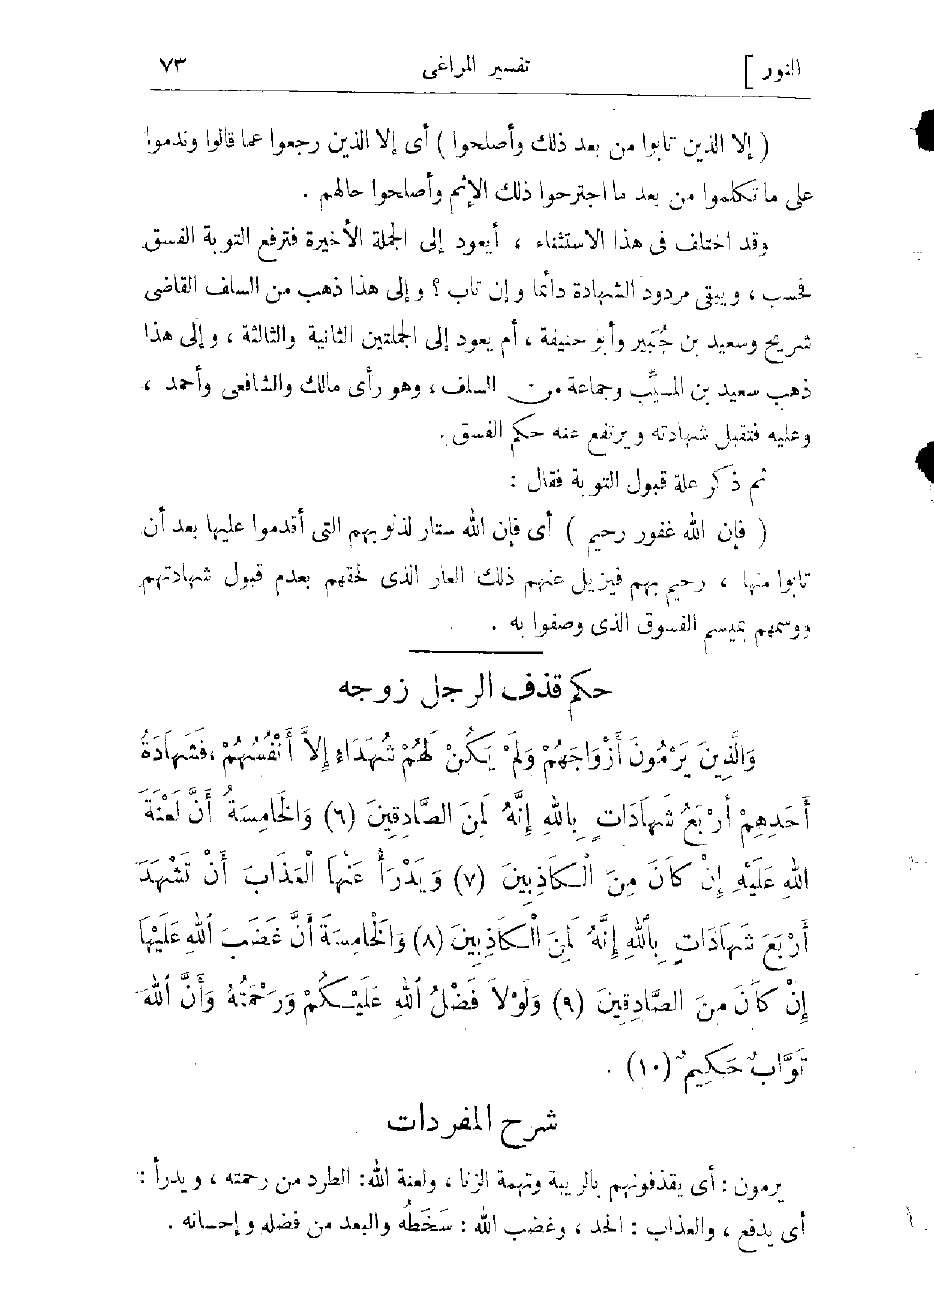 النور ] تفسير المراغى ٧٣
( إلا الذين تابوا من بعد ذلك وأصلحوا ) أى إلا الذين رجعوا عما قالوا وندموا
على ما تكلموا من بعد ما اجترحوا ذلك الإثم وأصلحوا حالهم .
وقد اختلف فى هذا الاستثناء ، أيعود إلى الجملة الأخيرة فترفع التوبة الفسق
فحسب ، ويبقى مردود الشهادة دائما وإن تاب ؟ وإلى هذا ذهب من السلف القاضى
شريح وسعيد بن جُبَير وأبو حنيفة ، أم يعود إلى الجملتين الثانية والثالثة ، وإلى هذا
ذهب سعيد بن المسيَّب وجماعة من السلف ، وهو رأى مالك والشافعى وأحمد ،
وعليه فتقبل شهادته ويرتفع عنه حكم الفسق .
ثم ذكر علة قبول التوبة فقال :
( فإن الله غفور رحيم ) أى فإن الله ستار لذنوبهم التى أقدموا عليها بعد أن
تابوا منها ، رحيم بهم فيزيل عنهم ذلك العار الذى لحقهم بعدم قبول شهادتهم
ووسمهم بميسم الفسوق الذى وصفوا به .
حكم قذف الرجل زوجه
وَالَّذِينَ يَرْمُونَ أَزْوَاجَهُمْ وَلَمْ يَكُنْ لَهُمْ شُهَدَاءِ إِلاَّ أَنْفُسُهُمْ ، فَشَهَادَةُ
أَحَدِهِمْ أَرْبَعُ شَهَادَاتٍ بِاللهِ إِنَّهُ لَمِنَ الصَّادِقِينَ (٦) وَالْخَامِسَةُ أَنَّ لَعْنَةَ
اللهِ عَلَيْهِ إِنْ كَانَ مِنَ الْكَاذِبِينَ (٧) وَيَدْرَأُ عَنْهَا الْعَذَابَ أَنْ تَشْهَدَ
أَرْبَعَ شَهَادَاتٍ بِاللهِ إِنَّهُ لَمِنَ الْكَاذِبِينَ (٨) وَالْخَامِسَةَ أَنَّ غَضَبَ اللهِ عَلَيْهَا
إِنْ كَانَ مِنَ الصَّادِقِينَ (٩) وَلَوْلاَ فَضْلُ اللهِ عَلَيْكُمْ وَرَحْمَتُهُ وَأَنَّ اللهَ
تَوَّابٌ حَكِيمٌ (١٠) .
شرح المفردات
يرمون : أى يقذفونهم بالريبة وتهمة الزنا ، ولعنة الله : الطرد من رحمته ، ويدرأ :
أى يدفع ، والعذاب : الحد ، وغضب الله : سَخَطُه والبعد من فضله وإحسانه .